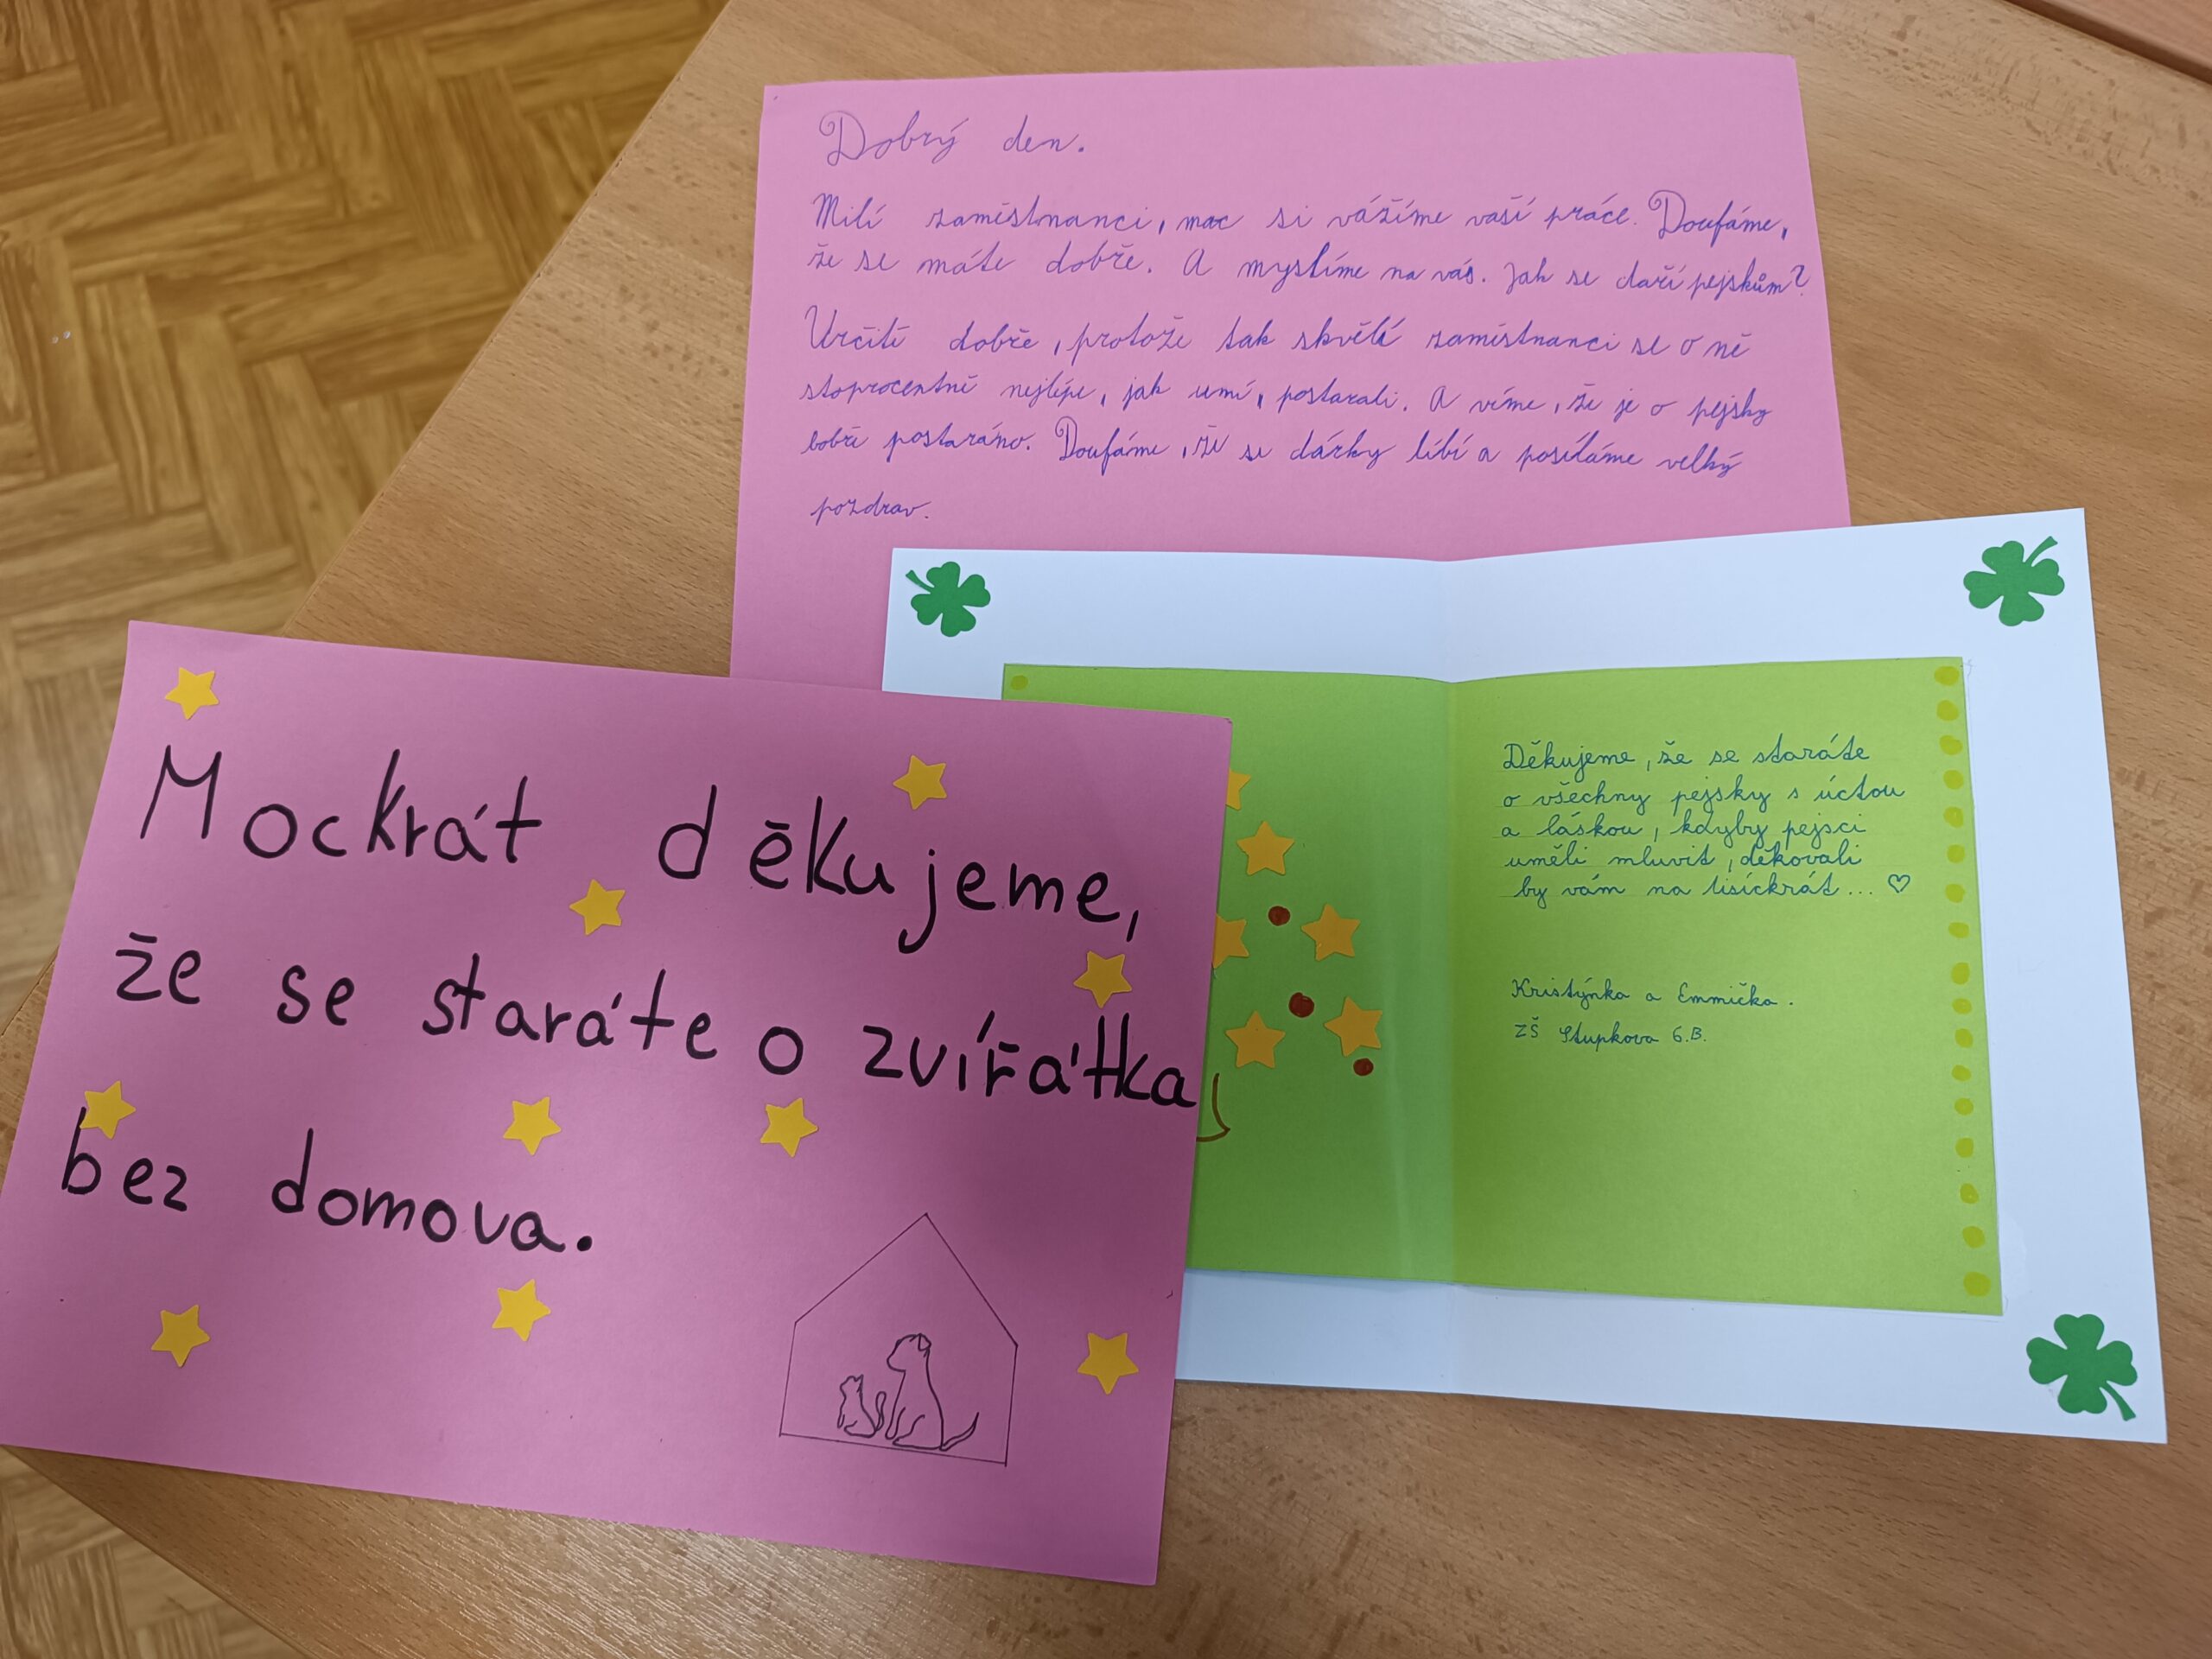 Dobrý den.
Milí zaměstnanci, moc si vážíme vaší práce. Doufáme,
že se máte dobře. A myslíme na vás. Jak se daří pejskům?
Určitě dobře, protože tak skvělí zaměstnanci se o ně
stoprocentně nejlépe, jak umí, postarali. A víme, že je o pejsky
dobře postaráno. Doufáme, že se dárky líbí a posíláme velký
pozdrav.
Mockrát děkujeme,
že se staráte o zvířátka
bez domova.
Děkujeme, že se staráte
o všechny pejsky s úctou
a láskou, kdyby pejsci
uměli mluvit, děkovali
by vám na tisíckrát... ♡
Kristýnka a Emmička.
ZŠ Stupkova 6.B.